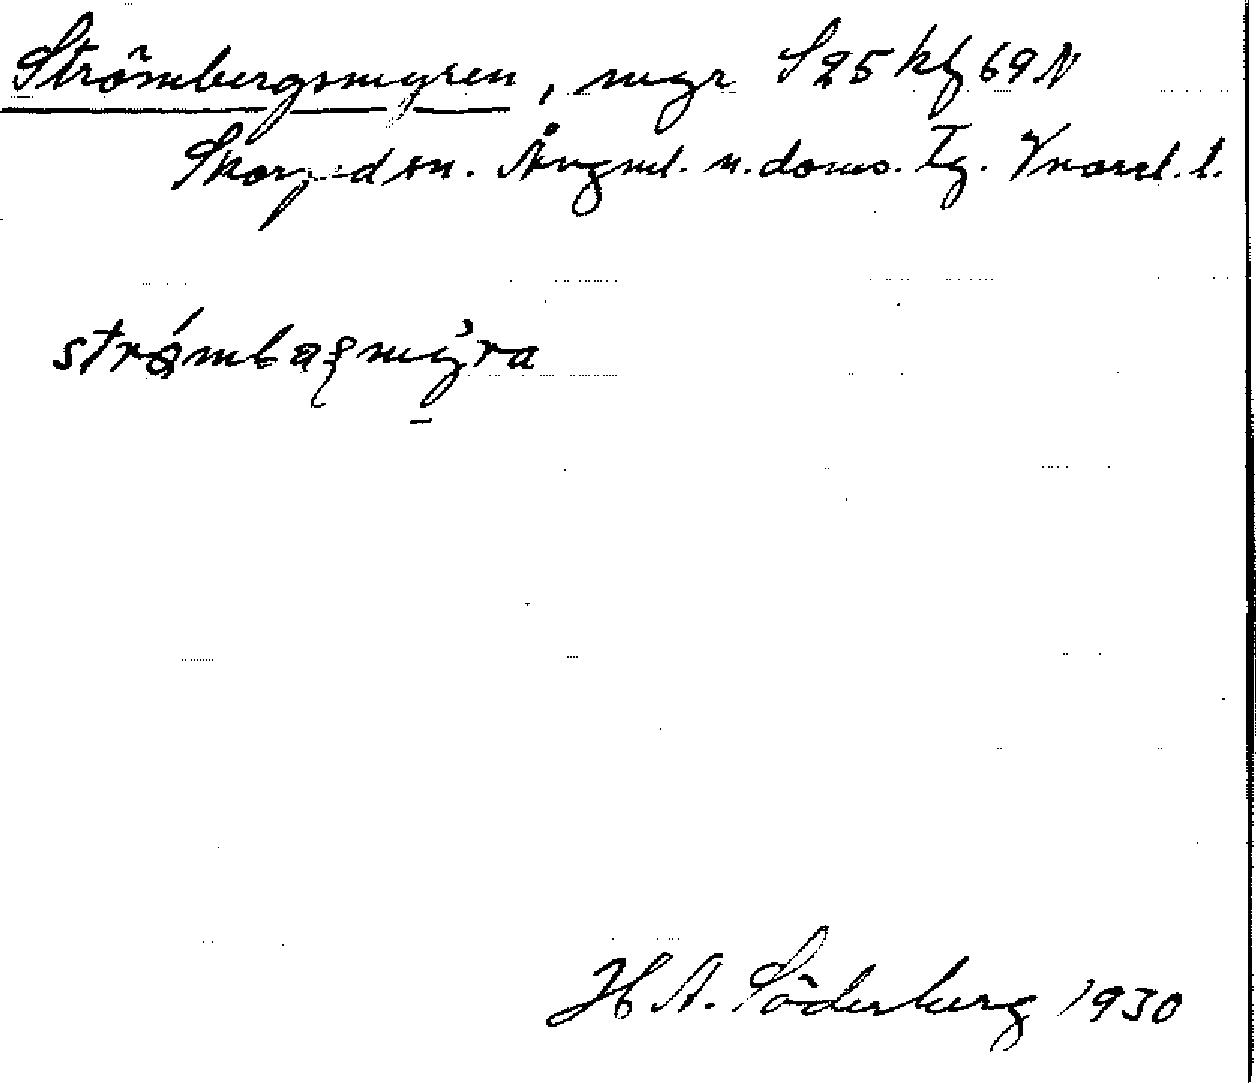 Strömbergsmyren, myr S 25 kf 69 N
Skorped sn. Ångml. n. doms. Tg. Vnorrl. l.
strømbaʒmy̌ra
H A. Söderberg 1930